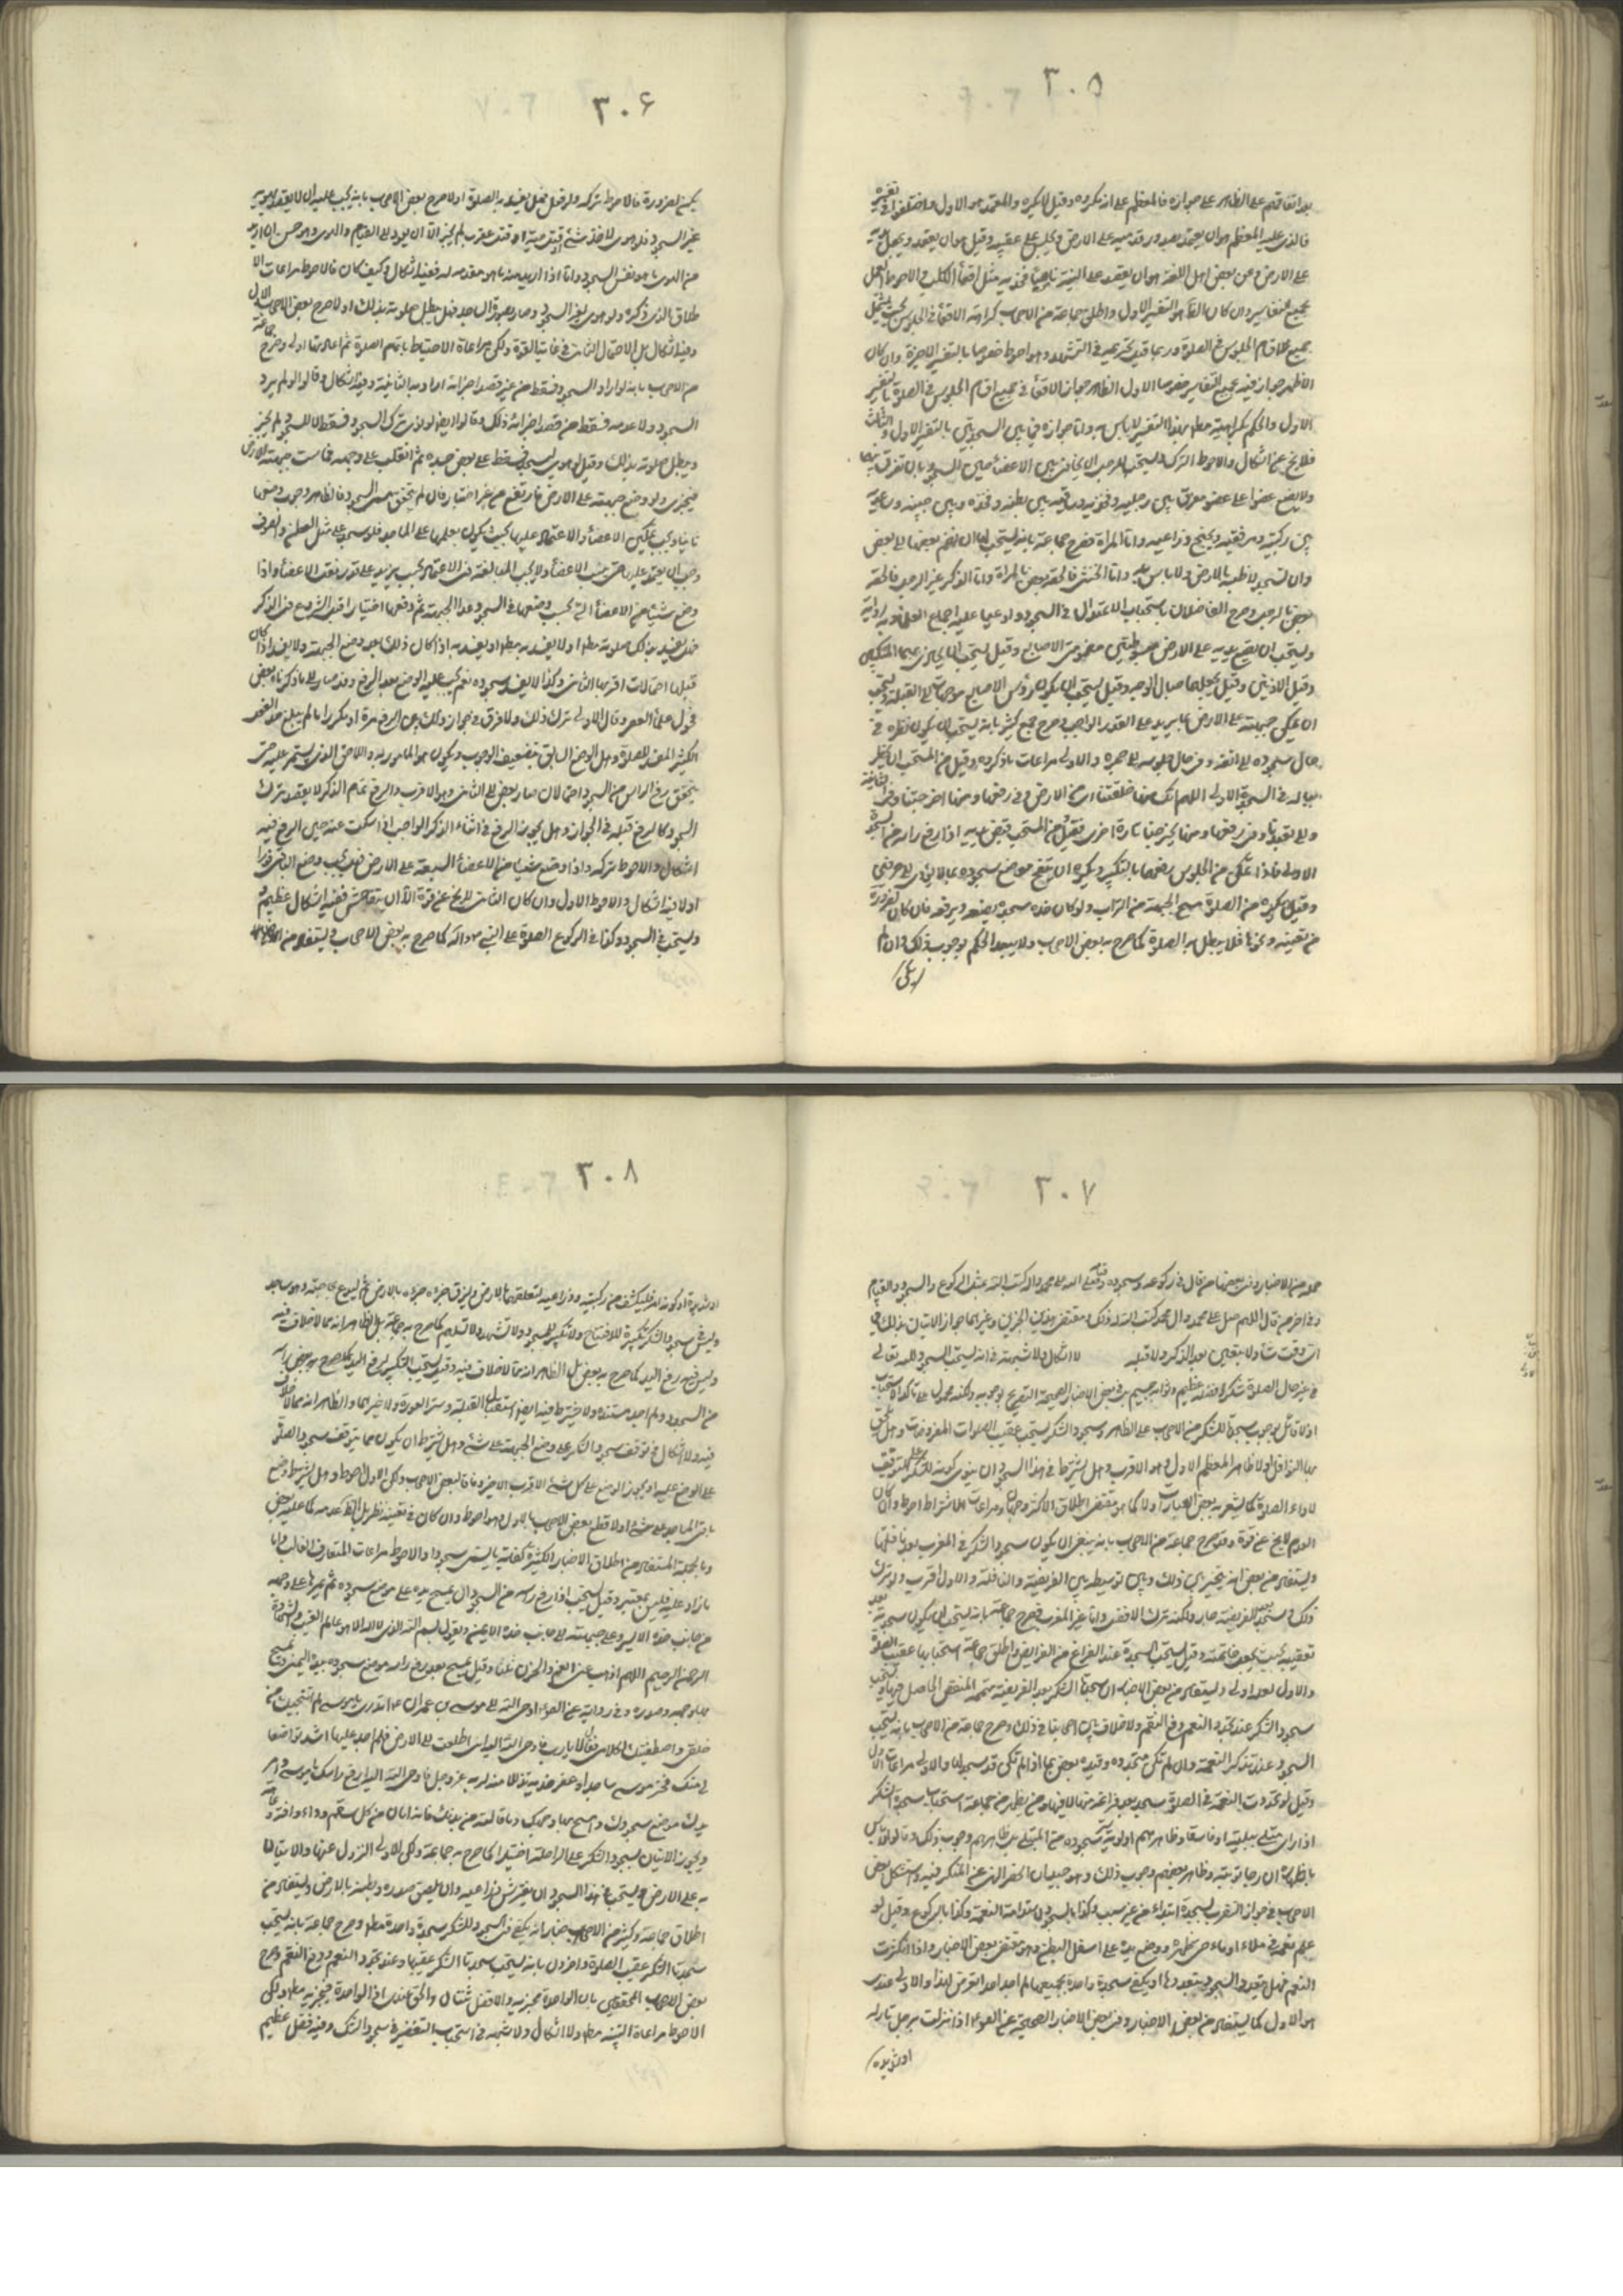 ٣٠٥
بعد اتفاقهم على الظاهر على جوازه فالمعظم على انه مكروه وقيل لا يكره والمعتمد هو الاول واختلفوا في تفسيره
فالذى عليه المعظم هو ان يعتمد بصدور قدميه على الارض ويجلس على عقبيه وقيل هو ان يقعد ويجعل يديه
على الارض وعن بعض اهل اللغة هو ان يقعد على اليتيه ناصبا فخذيه مثل اقعاء الكلب والاحوط العمل
بجميع التفاسير وان كان الظاهر التفسير الاول واطلق جماعة من الاصحاب كراهة الاقعاء في الجلوس بحيث يشمل
جميع اقسام الجلوس في الصلوة وربما قيل بتحريمه في التشهد وهو احوط خصوصا بالتفسير الاخير وان كان
الاظهر جوازه فيه بجميع التفاسير خصوصا الاول الظاهر جواز الاقعاء في جميع اقسام الجلوس في الصلوة بالتفسير
الاول والحكم بكراهته مطلقا بهذا التفسير لا باس به واما جوازه في بين السجدتين بالتفسير الاول والثالث
فلا يخ عن اشكال والاحوط الترك ويستحب للرجل التجافى بين الاعضاء حين السجود بان تفرق بينها
ولا يضع عضوا على عضو مفرق بين رجليه وفخذيه ومرفقيه بين بطنه وفخذه وبين جبينه وساعديه
بين ركبتيه ومرفقيه ويجنح ذراعيه واما المراة فصرح جماعة بانه يستحب لها ان تضم بعضها الى بعض
وان تسجد لاطئة بالارض ولا باس به واما الخنثى فالحقه بعض بالمراة واما الذكر غير الرجل فالحقه
بعض بالرجل وصرح الفاضلان باستحباب الاعتدال في السجود وادعيا عليه اجماع العلماء وبه رواية
ويستحب ان يضع يديه على الارض مبسوطتين مضمومتى الاصابع وقيل يستحب ان يحاذى بهما المنكبين
وقيل الاذنين وقيل يجعلهما حيال الوجه وقيل يستحب ان يكون رؤس الاصابع موجهات الى القبلة ويستحب
ان يمكن جبهته على الارض بما يزيد على القدر الواجب وصرح جمع كثير بانه يستحب ان يكون نظره في
حال سجوده الى انفه وفى حال جلوسه الى حجره والاولى مراعات ما ذكروه وقيل من المستحب ان يخطر
بباله في السجدة الاولى اللهم انك منها خلقتنا اى من الارض وفى رفعها ومنها اخرجتنا وفى الثانية
واليها تعيدنا وفى رفعها ومنها تخرجنا تارة اخرى وقيل من المستحب قبض يديه اذا رفع راسه من السجدة
الاولى فاذا تمكن من الجلوس رفعهما بالتكبير ويكره ان ينفخ موضع سجوده بما لا يؤدى الى حرفين
وقيل يكره في الصلوة مسح الجبهة من التراب ولو كان فى سجدة يضعه ويرفعه فان كان لضرورة
من تقية ونحوها فلا يبطل به الصلوة كما صرح به بعض الاصحاب ولا يبعد الحكم بوجوب ذلك وان لم
يكن
٣٠٦
يكن لضرورة فالاحوط تركه ولو فعل فهل يفسد به الصلوة اولا صرح بعض الاصحاب بانه يجب عليه ان لا يقصد بهويه
غير السجود فلو هوى لاخذ شئ او قتل حية او قتل عقرب لم يجز الا ان يعود الى القيام والهوى وهو حسن ان اريد
من الهوى ما هو نفس السجود واما اذا اريد منه ما هو مقدمة له ففيه اشكال وكيف كان فالاحوط مراعات الا
طلاق الذى ذكره ولو هوى لغير السجود وصار بصورة الساجد فهل يبطل صلوته بذلك اولا صرح بعض الاصحاب بالاول
وفيه اشكال بل الاحتمال الثانى في غاية القوة ولكن مراعاة الاحتياط باتمام الصلوة ثم اعادتها اولى وصرح جماعة
من الاصحاب بانه لو اراد السجود فسقط من غير قصد اجزاه ارادته الثانية وفيه اشكال وقالوا لو لم يرد
السجود ولا عدمه فسقط من قصد اجزائه ذلك وقالوا ايضا لو نوى ترك السجود فسقط لا للسجود لم يجز
ويبطل صلوته بذلك وقيل لو هوى ليسجد فسقط على بعض جسده ثم انقلب على وجهه فماست جبهته الارض
فيجزى ولو وضع جبهته على الارض فارتفع من غير اختيار فان لم يتحقق مسمى السجود فالظاهر وجوب وضعها
ثانيا ويجب تمكين الاعضاء والاعتماد عليها بحيث يكون بعلمها على المساجد فلو سجد على مثل القطن والصوف
وجب ان يعتمد عليه حتى يثبت الاعضاء ولا يجب المبالغة في الاعتماد بحيث يزيد على قدر ثقل الاعضاء واذا
وضع شيئا من الاعضاء التى يجب وضعها في السجود عدا الجبهة ثم رفعها اختيارا قبل الشروع في الذكر
فهل يفسد بذلك صلوته مطلقا اولا يفسد به مطلقا او يفسد به اذا كان ذلك بعد وضع الجبهة ولا يفسد اذا كان
قبلها احتمالات اقربها الثانى وكذا لا يفسد سجوده نعم يجب عليه الوضع بعد الرفع وقد صار الى ما ذكرنا بعض
فحول علماء العصر وقال الاولى ترك ذلك ولا فرق في جواز ذلك بين الرفع مرة او مكررا ما لم يبلغ حد الفعل
الكثير المفسد للصلوة وهل الوضع السابق يتصف بالوجوب ويكون هو المامور به واللاحق الذى يستمر عليه حتى
يتحقق رفع الراس من السجود احتمالان صار بعض الى الثانى وهو الاقرب والرفع تمام الذكر لا بقصد ترك
السجود كالرفع قبله في الجواز وهل يجوز الرفع في اثناء الذكر الواجب اذا سكت عنه حين الرفع فيه
اشكال والاحوط تركه واذا وضع بعضا من الاعضاء السبعة على الارض فهل يجب وضع الباقى فورا
اولا فيه اشكال والاحوط الاول وان كان الثانى لا يخ عن قوة الا ان يتفاحش ففيه اشكال عظيم
ويستحب في السجود وكذا في الركوع الصلوة على النبى ص واله كما صرح به بعض الاصحاب ويستفاد من
٣٠٧
جملة من الاخبار وفى بعضها من قال في ركوعه وسجوده وقيامه صلى الله على محمد واله كتب الله بمثل الركوع والسجود والقيام
وفى اخر من قال اللهم صل على محمد وال محمد كتب الله له ذلك ومقتضى هذين الخبرين وغيرهما جواز الاتيان بذلك في
اى وقت شاء ولا يتعين بعد الذكر ولا قبله لا اشكال ولا شبهة في انه يستحب السجود لله تعالى
في غير حال الصلوة شكرا وفضله عظيم وثوابه جسيم بل في بعض الاخبار الصحيحة التصريح بوجوبه ولكنه محمول على تاكد الاستحباب
اذ لا قائل بوجوب سجدة الشكر من الاصحاب على الظاهر وسجود الشكر يستحب عقيب الصلوات المفروضات وهل يلحق
بها النوافل اولا ظاهر المعظم الاول وهو الاقرب وهل يشترط في هذا السجود ان ينوى كونه للشكر على التوفيق
لاداء الصلوة كما يشعر به بعض العبارات اولا كما هو مقتضى اطلاق الاكثر وجهان ومراعات الاشتراط احوط وان كان
العدم لا يخ عن قوة وقد صرح جماعة من الاصحاب بانه ينبغى ان يكون سجود الشكر في المغرب بعد نافلتها
ويستفاد من بعض انه يتخير بين ذلك وبين توسيطه بين الفريضة والنافلة والاول اقرب ولو ترك
ذلك وسجد بعد الفريضة جاز ولكنه ترك الافضل واما غير المغرب فصرح جماعة بانه يستحب ان يكون سجدته بعد
تعقيبه بحيث يجعل خاتمته وقيل يستحب السجدة عند الفراغ من الفرايض واطلق جماعة استحبابها عقيب الصلوة
والاول لعله اولى ويستفاد من بعض الاخبار ان سجدتا الشكر بعد الفريضة متممة النقص الحاصل فيها ويستحب
سجود الشكر عند تجدد النعم ودفع النقم ولا خلاف بين اصحابنا في ذلك وصرح جماعة من الاصحاب بانه يستحب
السجود عند تذكر النعمة وان لم تكن متجددة وقيده بعض بما اذا لم تكن قد سجد لها والاولى مراعات الاول
وقيل لو تجددت النعمة في الصلوة سجد بعد فراغه منها لا فيها وعن ظاهر جماعة استحباب سجدة الشكر
اذا راى مبتلى ببلية او فاسقا وظاهرهم اولوية ستر سجوده من المبتلى بل ظاهرهم وجوب ذلك وقالوا لا باس
باظهاره ان رجا توبته وظاهر بعضهم وجوب ذلك وهو جيد ان انحصر النهى عن المنكر فيه واستشكل بعض
الاصحاب في جواز التقرب بسجدة ابتداء من غير سبب وكذا بالسجود لاستدامة النعمة وكذا بالركوع وقيل لو
علم نعمة في ملاء انحنى ووضع يده على اسفل البطن وهو مقتضى بعض الاخبار واذا تكررت
النعم فهل يتعدد السجود بتعددها او يكفى سجدة واحدة لجميعها لم اجد احدا تعرض لهذا والاولى عندى
هو الاول كما يستفاد من بعض الاخبار وفى بعض الاخبار الصحيحة عن الصادق اذا نزلت برجل نازلة
او شديدة
٣٠٨
او شديدة او كربه امر فليكشف عن ركبتيه وذراعيه وليلصقهما بالارض وليلزق جؤجؤه بالارض ثم ليدع بحاجته وهو ساجد
وليس في سجود الشكر تكبيرة للافتتاح ولا تكبير للسجود ولا تشهد ولا تسليم كما صرح به جماعة بل الظاهر انه مما لا خلاف فيه
وليس فيه رفع اليد كما صرح به بعض بل الظاهر انه مما لا خلاف فيه وقيل يستحب التكبير لرفع اليد كما صرح به بعض راسه
من السجود ولم اجد مستنده ولا يشترط فيه ايضا استقبال القبلة وستر العورة ولا غيرهما والظاهر انه مما لا خلاف
فيه ولا اشكال في توقف سجود الشكر على وضع الجبهة على شئ وهل يشترط ان يكون مما يتوقف سجود الصلوة
على الوضع عليه او يجوز الوضع على كل شئ الاقرب الاخير وفاقا لبعض الاصحاب ولكن الاول احوط وهل يشترط وضع
باقى المساجد على شئ اولا قطع بعض الاصحاب بالاول وهو احوط وان كان في تعينه نظر بل الظ عدمه كما عليه بعض
وبالجملة المستفاد من اطلاق الاخبار الكثيرة كفاية ما يسمى سجودا والاحوط مراعات المتعارف الغالب واما
ما زاد عليه فليس بمعتبر وقيل يستحب اذا رفع راسه من السجود ان يمسح يده على موضع سجوده ثم يمرها على وجهه
من جانب خده الايسر وعلى جبهته الى جانب خده الايمن ويقول بسم الله الذى لا اله الا هو عالم الغيب والشهادة
الرحمن الرحيم اللهم اذهب عنى الغم والحزن ثلثا وقيل يمسح بعد رفع راسه موضع سجوده بيده اليمنى ويمسح
بها وجهه وصدره وفى رواية عن الصادق اوحى الله الى موسى بن عمران ع اتدرى يا موسى لم انتجبتك من
خلقى واصطفيتك لكلامى فقال لا يارب فاوحى الله اليه انى اطلعت الى الارض فلم اجد عليها اشد تواضعا
لى منك فخر موسى ساجدا وعفر خديه تذللا منه لربه عز وجل فاوحى الله اليه ارفع راسك يا موسى وامر
يدك موضع سجودك وامسح بها وجهك وما نالته من بدنك فانه امان من كل سقم وداء وافة وعاهة
ويجوز الاتيان بسجود الشكر على الراحلة اختيارا كما صرح به جماعة ولكن الاولى النزول عنها والاتيان
به على الارض ويستحب في هذا السجود ان يفترش ذراعيه وان يلصق صدره وبطنه بالارض ويستفاد من
اطلاق جماعة وكثير من الاخبار انه يكفى في السجود للشكر سجدة واحدة مطلقا وصرح جماعة بانه يستحب
سجدتا الشكر عقيب الصلوة واخرون بانه يستحب سجدتا الشكر عقيبها وعند تجدد النعم ودفع النقم وصرح
بعض الاصحاب المحققين بان الواحدة مجزية والافضل ثنتان والحق عندى ان الواحدة مجزية مطلقا ولكن
الاحوط مراعاة التثنية مطلقا ولا اشكال ولا شبهة في استحباب التعفير في سجود الشكر وفيه فضل عظيم